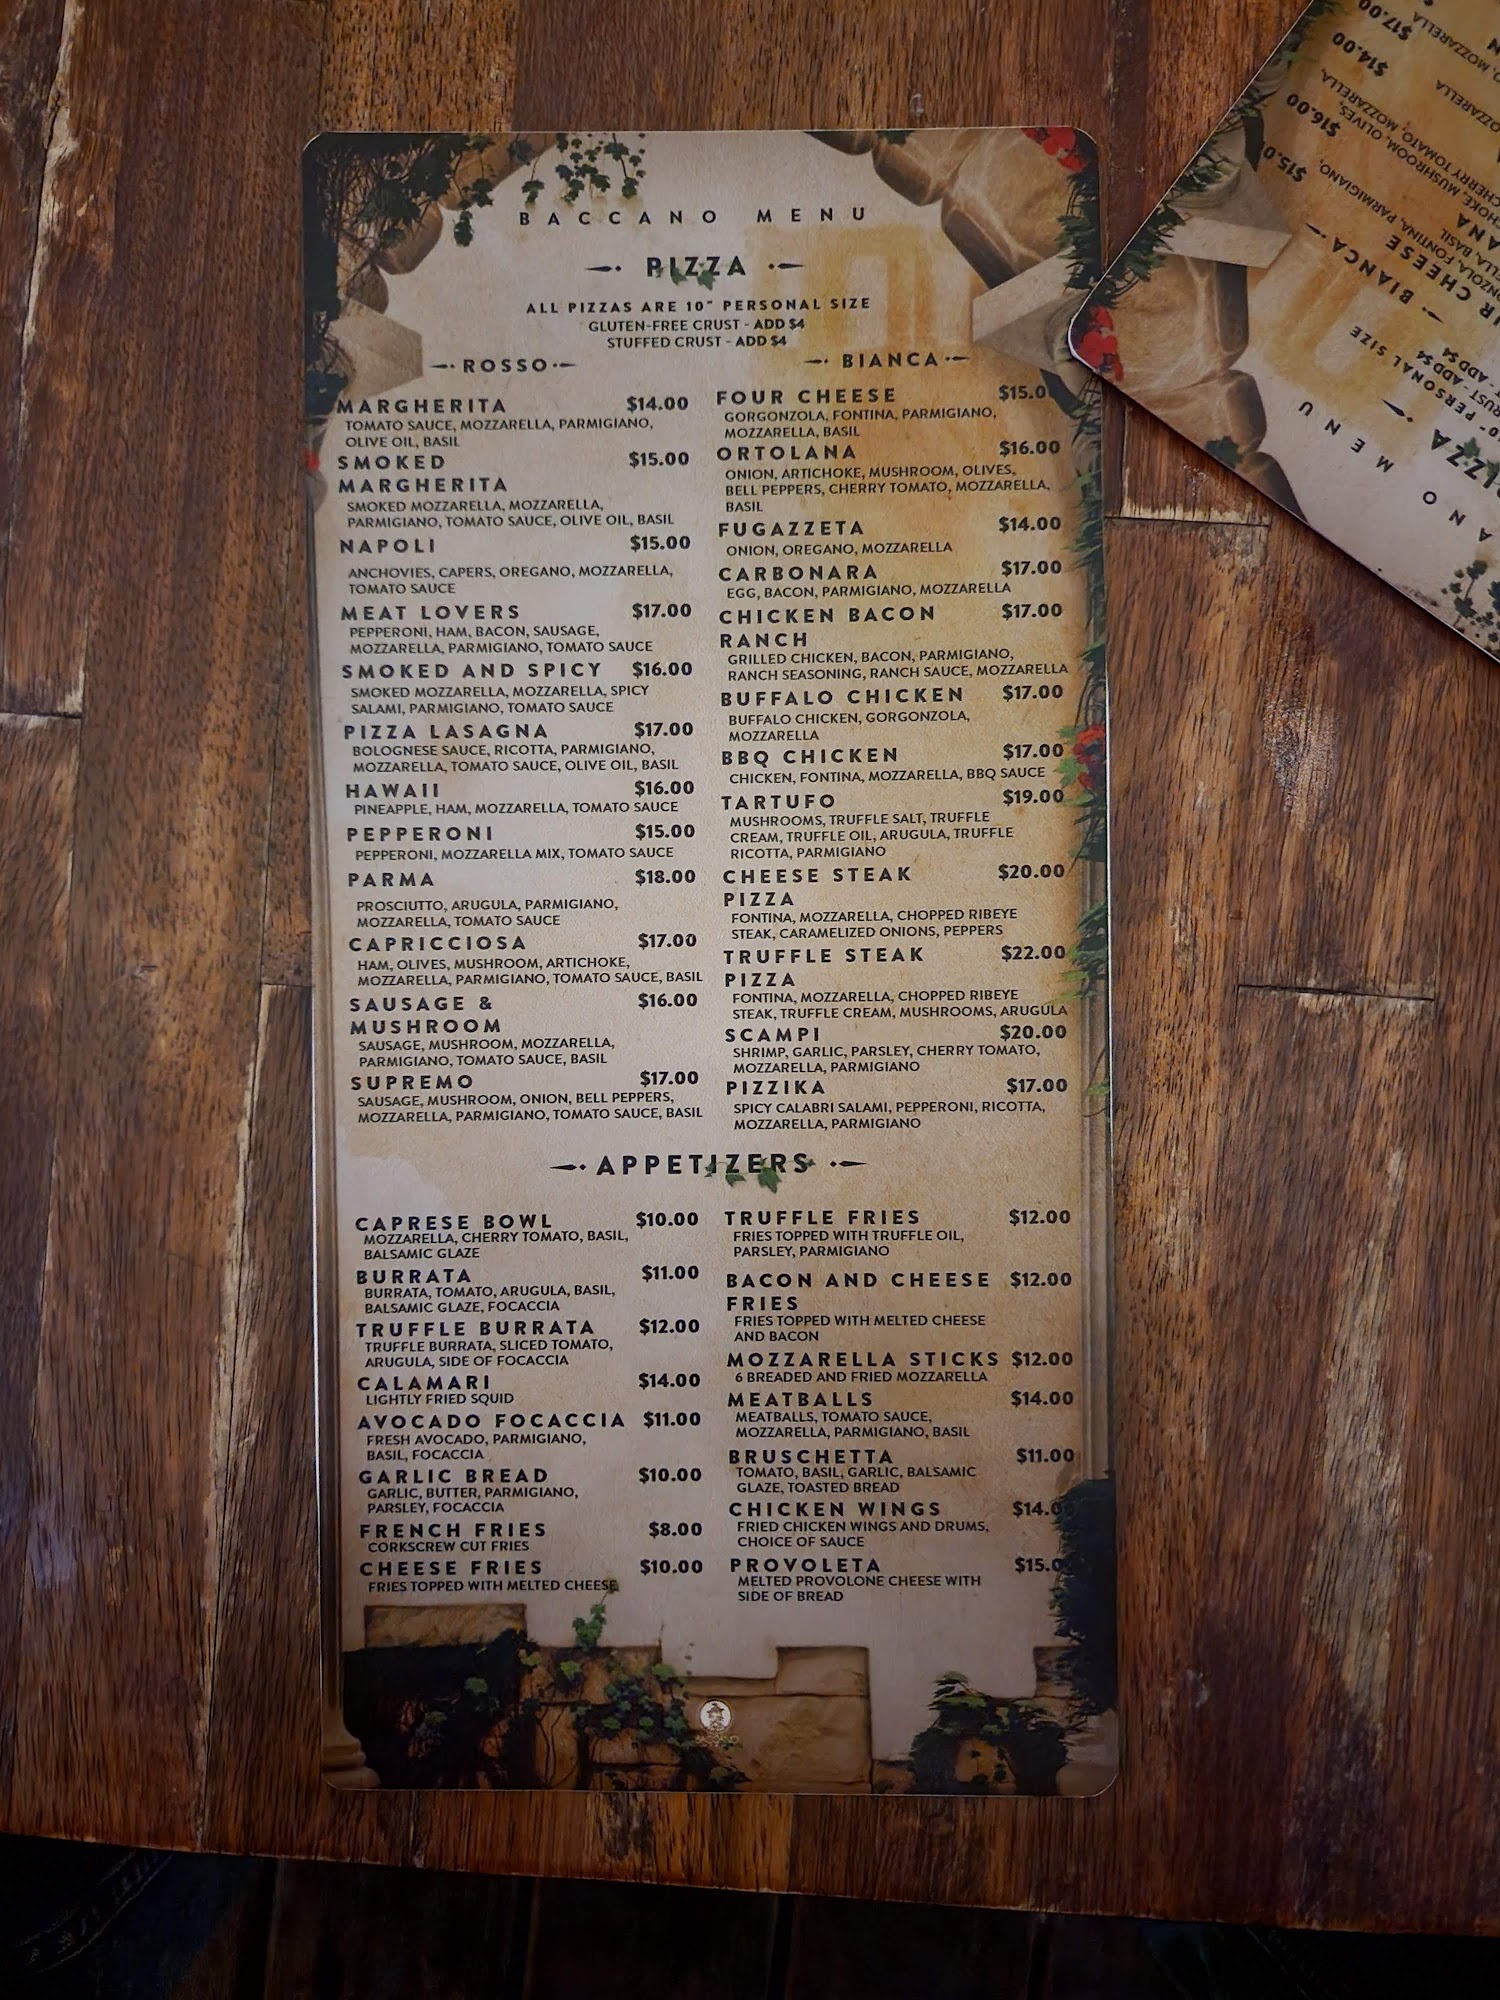 BACCANO MENU
PIZZA
ALL PIZZAS ARE 10" PERSONAL SIZE
GLUTEN-FREE CRUST - ADD $4
STUFFED CRUST - ADD $4
ROSSO
MARGHERITA $14.00
TOMATO SAUCE, MOZZARELLA, PARMIGIANO,
OLIVE OIL, BASIL
SMOKED $15.00
MARGHERITA
SMOKED MOZZARELLA, MOZZARELLA,
PARMIGIANO, TOMATO SAUCE, OLIVE OIL, BASIL
NAPOLI $15.00
ANCHOVIES, CAPERS, OREGANO, MOZZARELLA,
TOMATO SAUCE
MEAT LOVERS $17.00
PEPPERONI, HAM, BACON, SAUSAGE,
MOZZARELLA, PARMIGIANO, TOMATO SAUCE
SMOKED AND SPICY $16.00
SMOKED MOZZARELLA, MOZZARELLA, SPICY
SALAMI, PARMIGIANO, TOMATO SAUCE
PIZZA LASAGNA $17.00
BOLOGNESE SAUCE, RICOTTA, PARMIGIANO,
MOZZARELLA, TOMATO SAUCE, OLIVE OIL, BASIL
HAWAII $16.00
PINEAPPLE, HAM, MOZZARELLA, TOMATO SAUCE
PEPPERONI $15.00
PEPPERONI, MOZZARELLA MIX, TOMATO SAUCE
PARMA $18.00
PROSCIUTTO, ARUGULA, PARMIGIANO,
MOZZARELLA, TOMATO SAUCE
CAPRICCIOSA $17.00
HAM, OLIVES, MUSHROOM, ARTICHOKE,
MOZZARELLA, PARMIGIANO, TOMATO SAUCE, BASIL
SAUSAGE & $16.00
MUSHROOM
SAUSAGE, MUSHROOM, MOZZARELLA,
PARMIGIANO, TOMATO SAUCE, BASIL
SUPREMO $17.00
SAUSAGE, MUSHROOM, ONION, BELL PEPPERS,
MOZZARELLA, PARMIGIANO, TOMATO SAUCE, BASIL
BIANCA
FOUR CHEESE $15.0
GORGONZOLA, FONTINA, PARMIGIANO,
MOZZARELLA, BASIL
ORTOLANA $16.00
ONION, ARTICHOKE, MUSHROOM, OLIVES,
BELL PEPPERS, CHERRY TOMATO, MOZZARELLA,
BASIL
FUGAZZETA $14.00
ONION, OREGANO, MOZZARELLA
CARBONARA $17.00
EGG, BACON, PARMIGIANO, MOZZARELLA
CHICKEN BACON $17.00
RANCH
GRILLED CHICKEN, BACON, PARMIGIANO,
RANCH SEASONING, RANCH SAUCE, MOZZARELLA
BUFFALO CHICKEN $17.00
BUFFALO CHICKEN, GORGONZOLA,
MOZZARELLA
BBQ CHICKEN $17.00
CHICKEN, FONTINA, MOZZARELLA, BBQ SAUCE
TARTUFO $19.00
MUSHROOMS, TRUFFLE SALT, TRUFFLE
CREAM, TRUFFLE OIL, ARUGULA, TRUFFLE
RICOTTA, PARMIGIANO
CHEESE STEAK $20.00
PIZZA
FONTINA, MOZZARELLA, CHOPPED RIBEYE
STEAK, CARAMELIZED ONIONS, PEPPERS
TRUFFLE STEAK $22.00
PIZZA
FONTINA, MOZZARELLA, CHOPPED RIBEYE
STEAK, TRUFFLE CREAM, MUSHROOMS, ARUGULA
SCAMPI $20.00
SHRIMP, GARLIC, PARSLEY, CHERRY TOMATO,
MOZZARELLA, PARMIGIANO
PIZZIKA $17.00
SPICY CALABRI SALAMI, PEPPERONI, RICOTTA,
MOZZARELLA, PARMIGIANO
APPETIZERS
CAPRESE BOWL $10.00
MOZZARELLA, CHERRY TOMATO, BASIL,
BALSAMIC GLAZE
BURRATA $11.00
BURRATA, TOMATO, ARUGULA, BASIL,
BALSAMIC GLAZE, FOCACCIA
TRUFFLE BURRATA $12.00
TRUFFLE BURRATA, SLICED TOMATO,
ARUGULA, SIDE OF FOCACCIA
CALAMARI $14.00
LIGHTLY FRIED SQUID
AVOCADO FOCACCIA $11.00
FRESH AVOCADO, PARMIGIANO,
BASIL, FOCACCIA
GARLIC BREAD $10.00
GARLIC, BUTTER, PARMIGIANO,
PARSLEY, FOCACCIA
FRENCH FRIES $8.00
CORKSCREW CUT FRIES
CHEESE FRIES $10.00
FRIES TOPPED WITH MELTED CHEESE
TRUFFLE FRIES $12.00
FRIES TOPPED WITH TRUFFLE OIL,
PARSLEY, PARMIGIANO
BACON AND CHEESE $12.00
FRIES
FRIES TOPPED WITH MELTED CHEESE
AND BACON
MOZZARELLA STICKS $12.00
6 BREADED AND FRIED MOZZARELLA
MEATBALLS $14.00
MEATBALLS, TOMATO SAUCE,
MOZZARELLA, PARMIGIANO, BASIL
BRUSCHETTA $11.00
TOMATO, BASIL, GARLIC, BALSAMIC
GLAZE, TOASTED BREAD
CHICKEN WINGS $14.0
FRIED CHICKEN WINGS AND DRUMS,
CHOICE OF SAUCE
PROVOLETA $15.0
MELTED PROVOLONE CHEESE WITH
SIDE OF BREAD
ANO MENU
PIZZA
PERSONAL SIZE
ADD $4
ADD $4
BIANCA
CHEESE
$15.0
FONTINA, PARMIGIANO,
BASIL
$16.00
MUSHROOM, OLIVES,
CHERRY TOMATO, MOZZARELLA,
$14.00
$17.00
MOZZARELLA